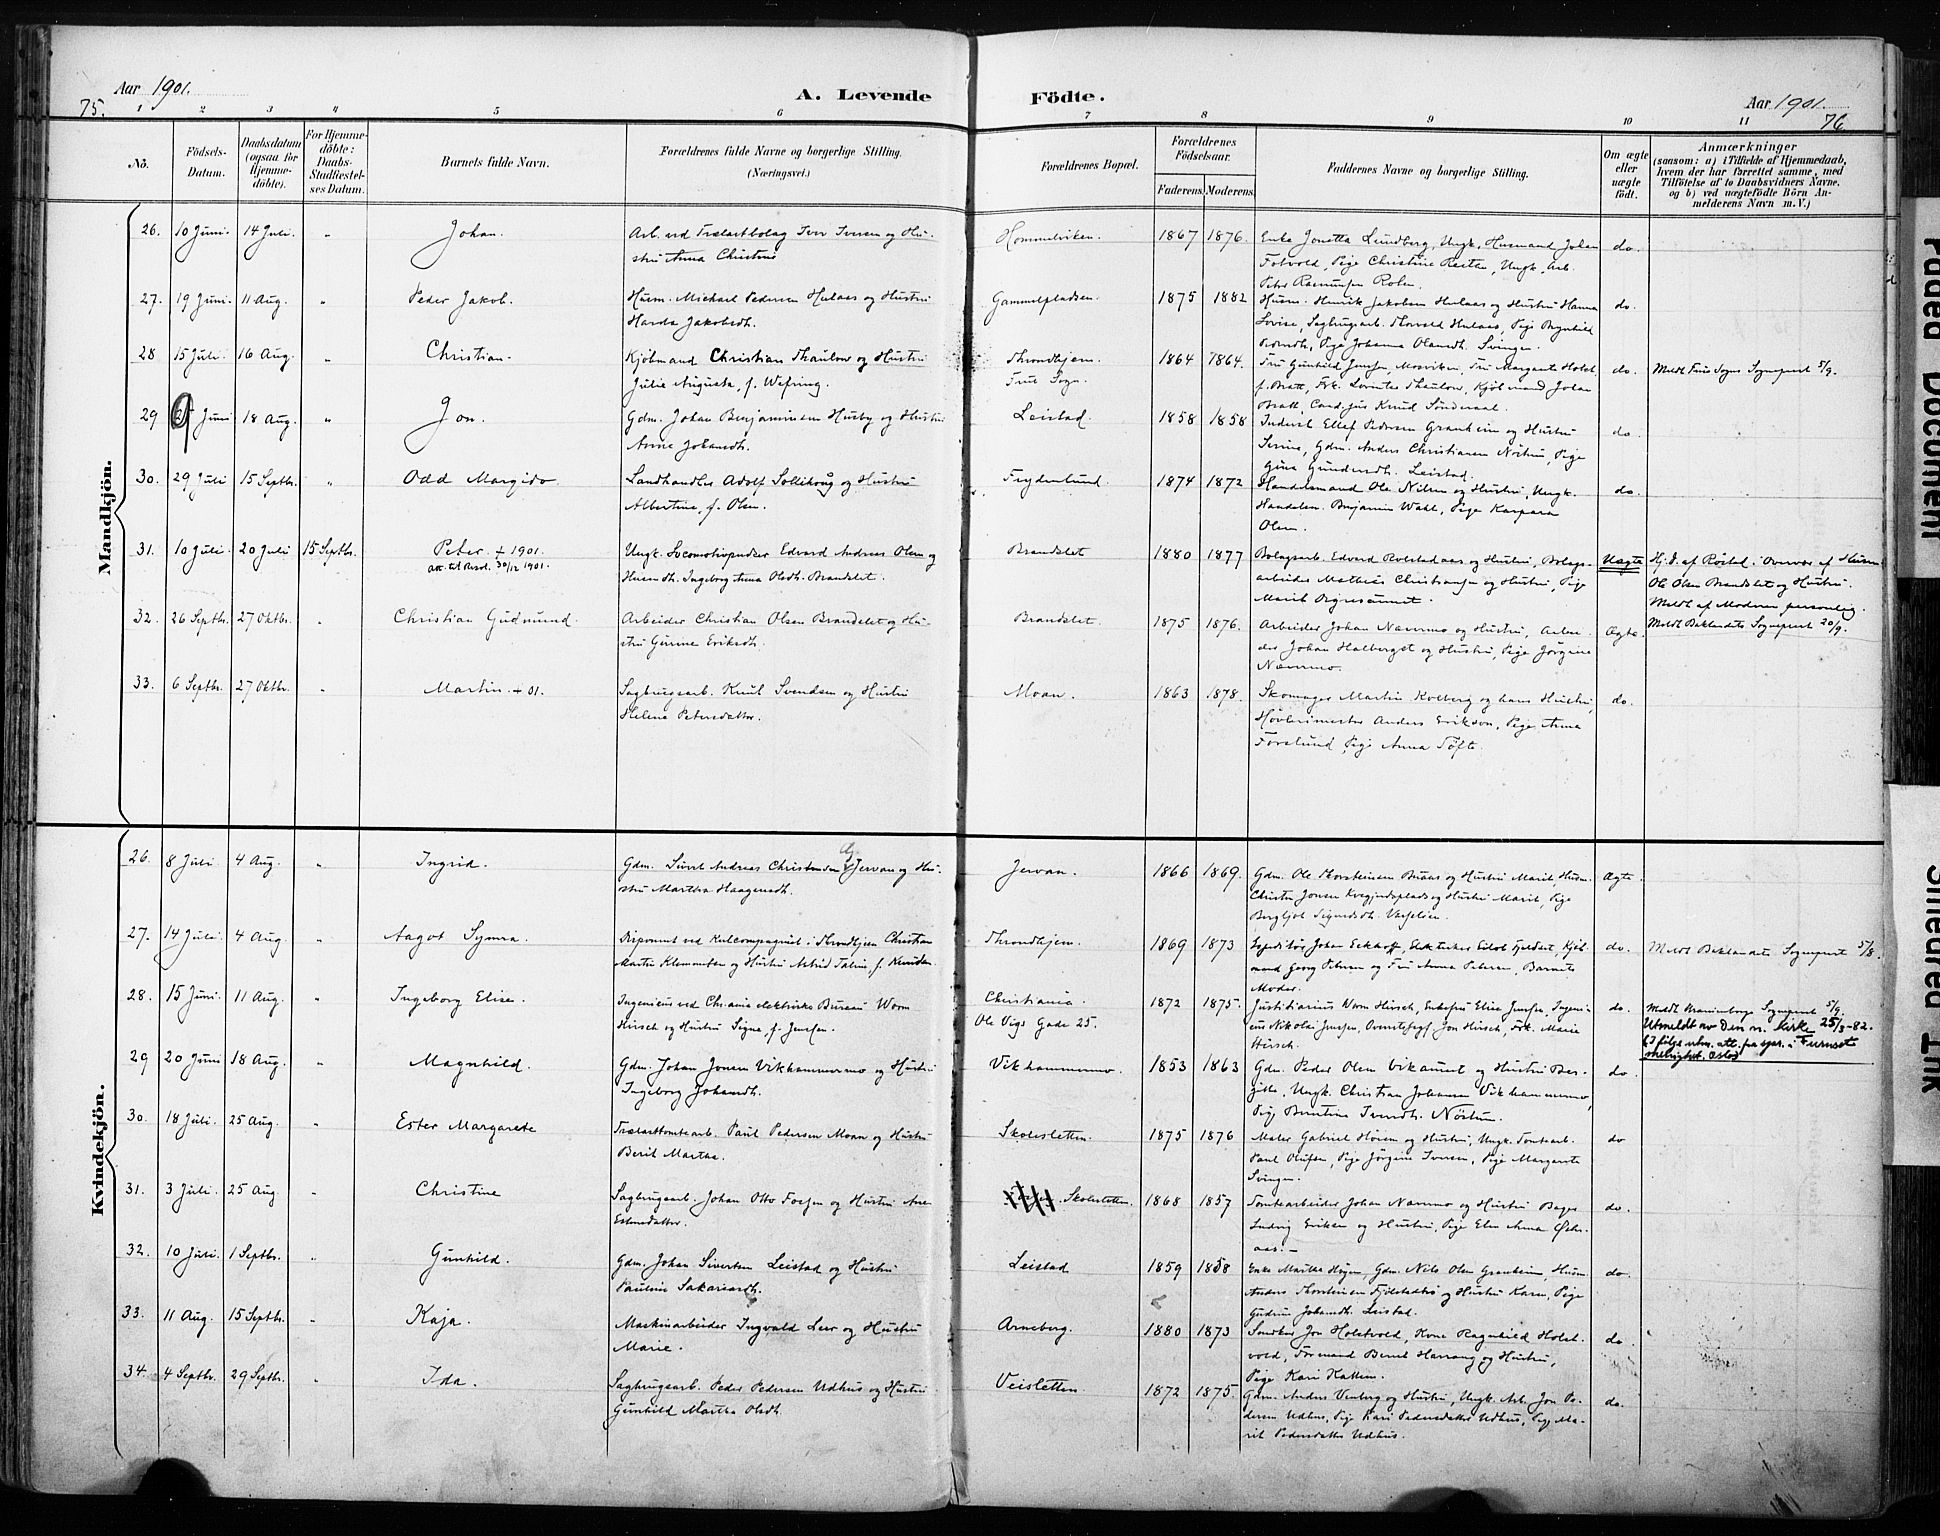 Aar 1901.
75.
A. Levende Födte.
Aar 1901.
76
1 2 3 4 5 6 7 8 9 10 11
No.
Födsels-Datum.
Daabsdatum (ogsaa for Hjemme-döbte).
For Hjemme-döbte: Daabs-Stadfæstel-ses Datum.
Barnets fulde Navn.
Forældrenes fulde Navne og borgerlige Stilling. (Næringsvei.)
Forældrenes Bopæl.
Forældrenes Födselsaar.
Faderens. Moderens.
Faddernes Navne og borgerlige Stilling.
Om ægte eller uægte födt.
Anmærkninger
(saasom: a) i Tilfælde af Hjemmedaab, hvem der har forrettet samme, med Tilföielse af to Daabsvidners Navne, og b) ved uægtefödte Börn An-melderens Navn m. V.)
Mandkjön.
26. 10 Juni. 14 Juli. " Johan. Arb. ved Trælastbolag Iver Iversen og Hu-
stru Anna Christine
Hommelviken. 1867 1876. Enke Jonetta Lundberg, Ungk. Husmand Johan
Fotvold, Pige Christine Restan, Ungk. Arb.
Peter Rasmussen do.
27. 19 Juni. 11 Aug. " Peder Jakob. Husm. Michael Pedersen Hulaas og Hustru
Jakobsdh.
Gammelpladsen. 1875 1882 Husm. Henrik Jakobsen Hulaas og Hustru Hanna
Lovise, Sagbrugsarb. Thorvald Hulaas, Pige
Pige Johanna Olausdh. Svingen. do.
28 15 Juli. 16 Aug. " Christian. Kjøbmand Christian Thaulow og Hustru
Julie Augusta, f. Wefring.
Throndhjem.
Frue Sogn. 1864 1864. Fru Gunhild Jenssen, Mosviken, Fru Margarete Holst
f. Bratt, Frk. Thaulow, Kjøbmand Johan
Bratt, Cand. jur. Knud Sønderaal. do. Meldt Frue Sogns Sogneprest 5/9.
29 9 Juni 18 Aug. " Jon. Gdm. Johan Benjaminsen Husby og Hustru
Anne Johansdh.
Leistad. 1858 1858 Inderst Ellef Pedersen Granheim og Hustru
Gdm. Anders Christiansen Nøstru, Pige
Gina Gundersdh. Leistad. do.
30. 29 Juli 15 Septbr. " Odd Margido. Landhandler Adolf og Hustru
Albertine, f. Olsen.
Frydenlund. 1874 1872 Handelsmand Ole Nilsen og Hustru, Ungk.
Handelsm. Benjamin Wahl, Pige Kaspara
Olsen. do.
31. 10 Juli. 20 Juli 15 Septbr. Peter + 1901.
att. tilResd. 30/12 1901.
Ungk. Locomotivpudser Edvard Andreas Olsen og
Husmdh. Ingeborg Anna Olsdh. Brandslet.
Brandslet 1880 1877 Bolagsarb. Edvard Rolstadaas og Hustru, Bolags-
arbeider Mathias Christiansen og Hustru, Pige
Marit Uægte Hj. D. af Røstad i Overvær af Husm.
Ole Olsen Brandslet og Hustru.
Meldt af Moderen personlig.
Meldt Baklandets Sogneprest 20/9.
32. 26 Septbr. 27 Oktbr. " Christian Gudmund. Arbeider Christian Olsen Brandslet og Hu-
stru Gurine Eriksdh.
Brandslet. 1875 1876. Arbeider Johan Navnmo og Hustru, Arbei-
der Johan Halberget og Hustru, Pige Jørgine
Navnmo. Ægte.
33. 6 Septbr. 27 Oktbr. " Martin. + 01. Sagbrugsarb. Knut Svendsen og Hustru
Helene Petersdatter.
Moan. 1863 1878. Skomager Martin Kolberg og hans Hustru,
Høvlerimester Anders Erikson, Pige Anna
Forslund, Pige Anna Tofte. do.
Kvindekjön.
26. 8 Juli 4 Aug. " Ingrid. Gdm. Sivert Andreas Christensen Jervan og Hu-
stru Martha Haagensdh.
Jervan. 1866 1869. Gdm. Ole Thorsteinsen Braas og Hustru Marit, Husm.
Christen Jonsen Kvegjerdsplads og Hustru Marit, Pige
Bergljot Sigurdsdh. Vasselien. Ægte
27. 14 Juli. 4 Aug. " Aagot Synna. Disponent ved Kulcompagniet i Throndhjem Christian
Martin Klemmetsen og Hustru Astrid Taline f. Knudsen
Throndhjem. 1869 1873 Expeditør Johan Eckhoff, Elektriker Eilof Fjeldseth, Kjøb-
mand Georg Petersen og Fru Anna Petersen, Barnets
Moder. do. Meldt Baklandets Sogneprest 5/8.
28. 15 Juni. 11 Aug. " Ingeborg Elise. Ingeniør ved Chr.ania elektriske Bureau Worm
Hirsch og Hustru Signe, f. Jenssen.
Christiania
Ole Vigs Gade 25. 1872 1875. Justitiarius Worm Hirsch, Enkefru Elise Jenssen, Ingeni-
ør Nikolai Jenssen, Jon Hirsch, Frk. Marie
Hirsch. do. Meldt Uranienborgs Sogneprest 5/9.
Utmeldt av Den n. kirke 25/3-82.
i følge utm. att. fra spr. i Furuset
menighet, Oslo
29 20 Juni 18 Aug. " Magnhild. Gdm. Johan Jonsen Vikhammermo og Hustru
Ingeborg Johansdh.
Vikhammermo. 1853 1863 Gdm. Peder Olsen Vikaunet og Hustru Ber-
gitte, Ungk. Christian Johansen Vikhammermo,
Pige Iversdh. Nøstru. do.
30. 18 Juli. 25 Aug. " Ester Margarete Trælasttomtearb. Paul Pedersen Moan og Hustru
Berit Martha.
Skolesletten. 1875 1876 Maler Gabriel Høisen og Hustru, Ungk. Tomtearb.
Paul Olufsen, Pige Jørgine Iversen, Pige Margarete
Svingen. do
31. 3 Juli. 25 Aug. " Christine Sagbrugsarb. Johan Otto Fossen og Hustru Ane
Estensdatter.
Skolesletten. 1868 1857 Tomtearbeider Johan Navnmo og Hustru Bager
Ludvig Eriksen og Hustru, Pige Elen Anna
do.
32. 10 Juli. 1 Septbr. " Gunhild. Gdm. Johan Sivertsen Leistad og Hustru
Pauline Sakariasdh.
Leistad 1859 1858 Enke Martha Høgen, Gdm. Nils Olsen Granheim, Husm.
Anders Thorsteinsen og Hustru Karen, Pige
Gudrun Johansdh. Leistad. do.
33. 11 Aug. 15 Septbr. " Kaja. Maskinarbeider Ingvald Leer og Hustru
Marie.
Arneberg. 1880 1873 Snedker Jon Holstvold, Kone Ragnhild Holst-
vold, Formand Bernt Harrang og Hustru,
Pige Kari Hattem. do.
34. 4 Septbr. 29 Septbr. " Ida. Sagbrugsarb. Peder Pedersen Udhus og Hustru
Gunhild Martha Olsdh.
Veisletten 1872 1875. Gdm. Anders Venberg og Hustru, Ungk. Arb. Jon Pe-
dersen Udhus, Pige Kari Pedersdatter Udhus, Pige Ma-
rit Pedersdatter Udhus. do.
Faded Document
Smeared Ink